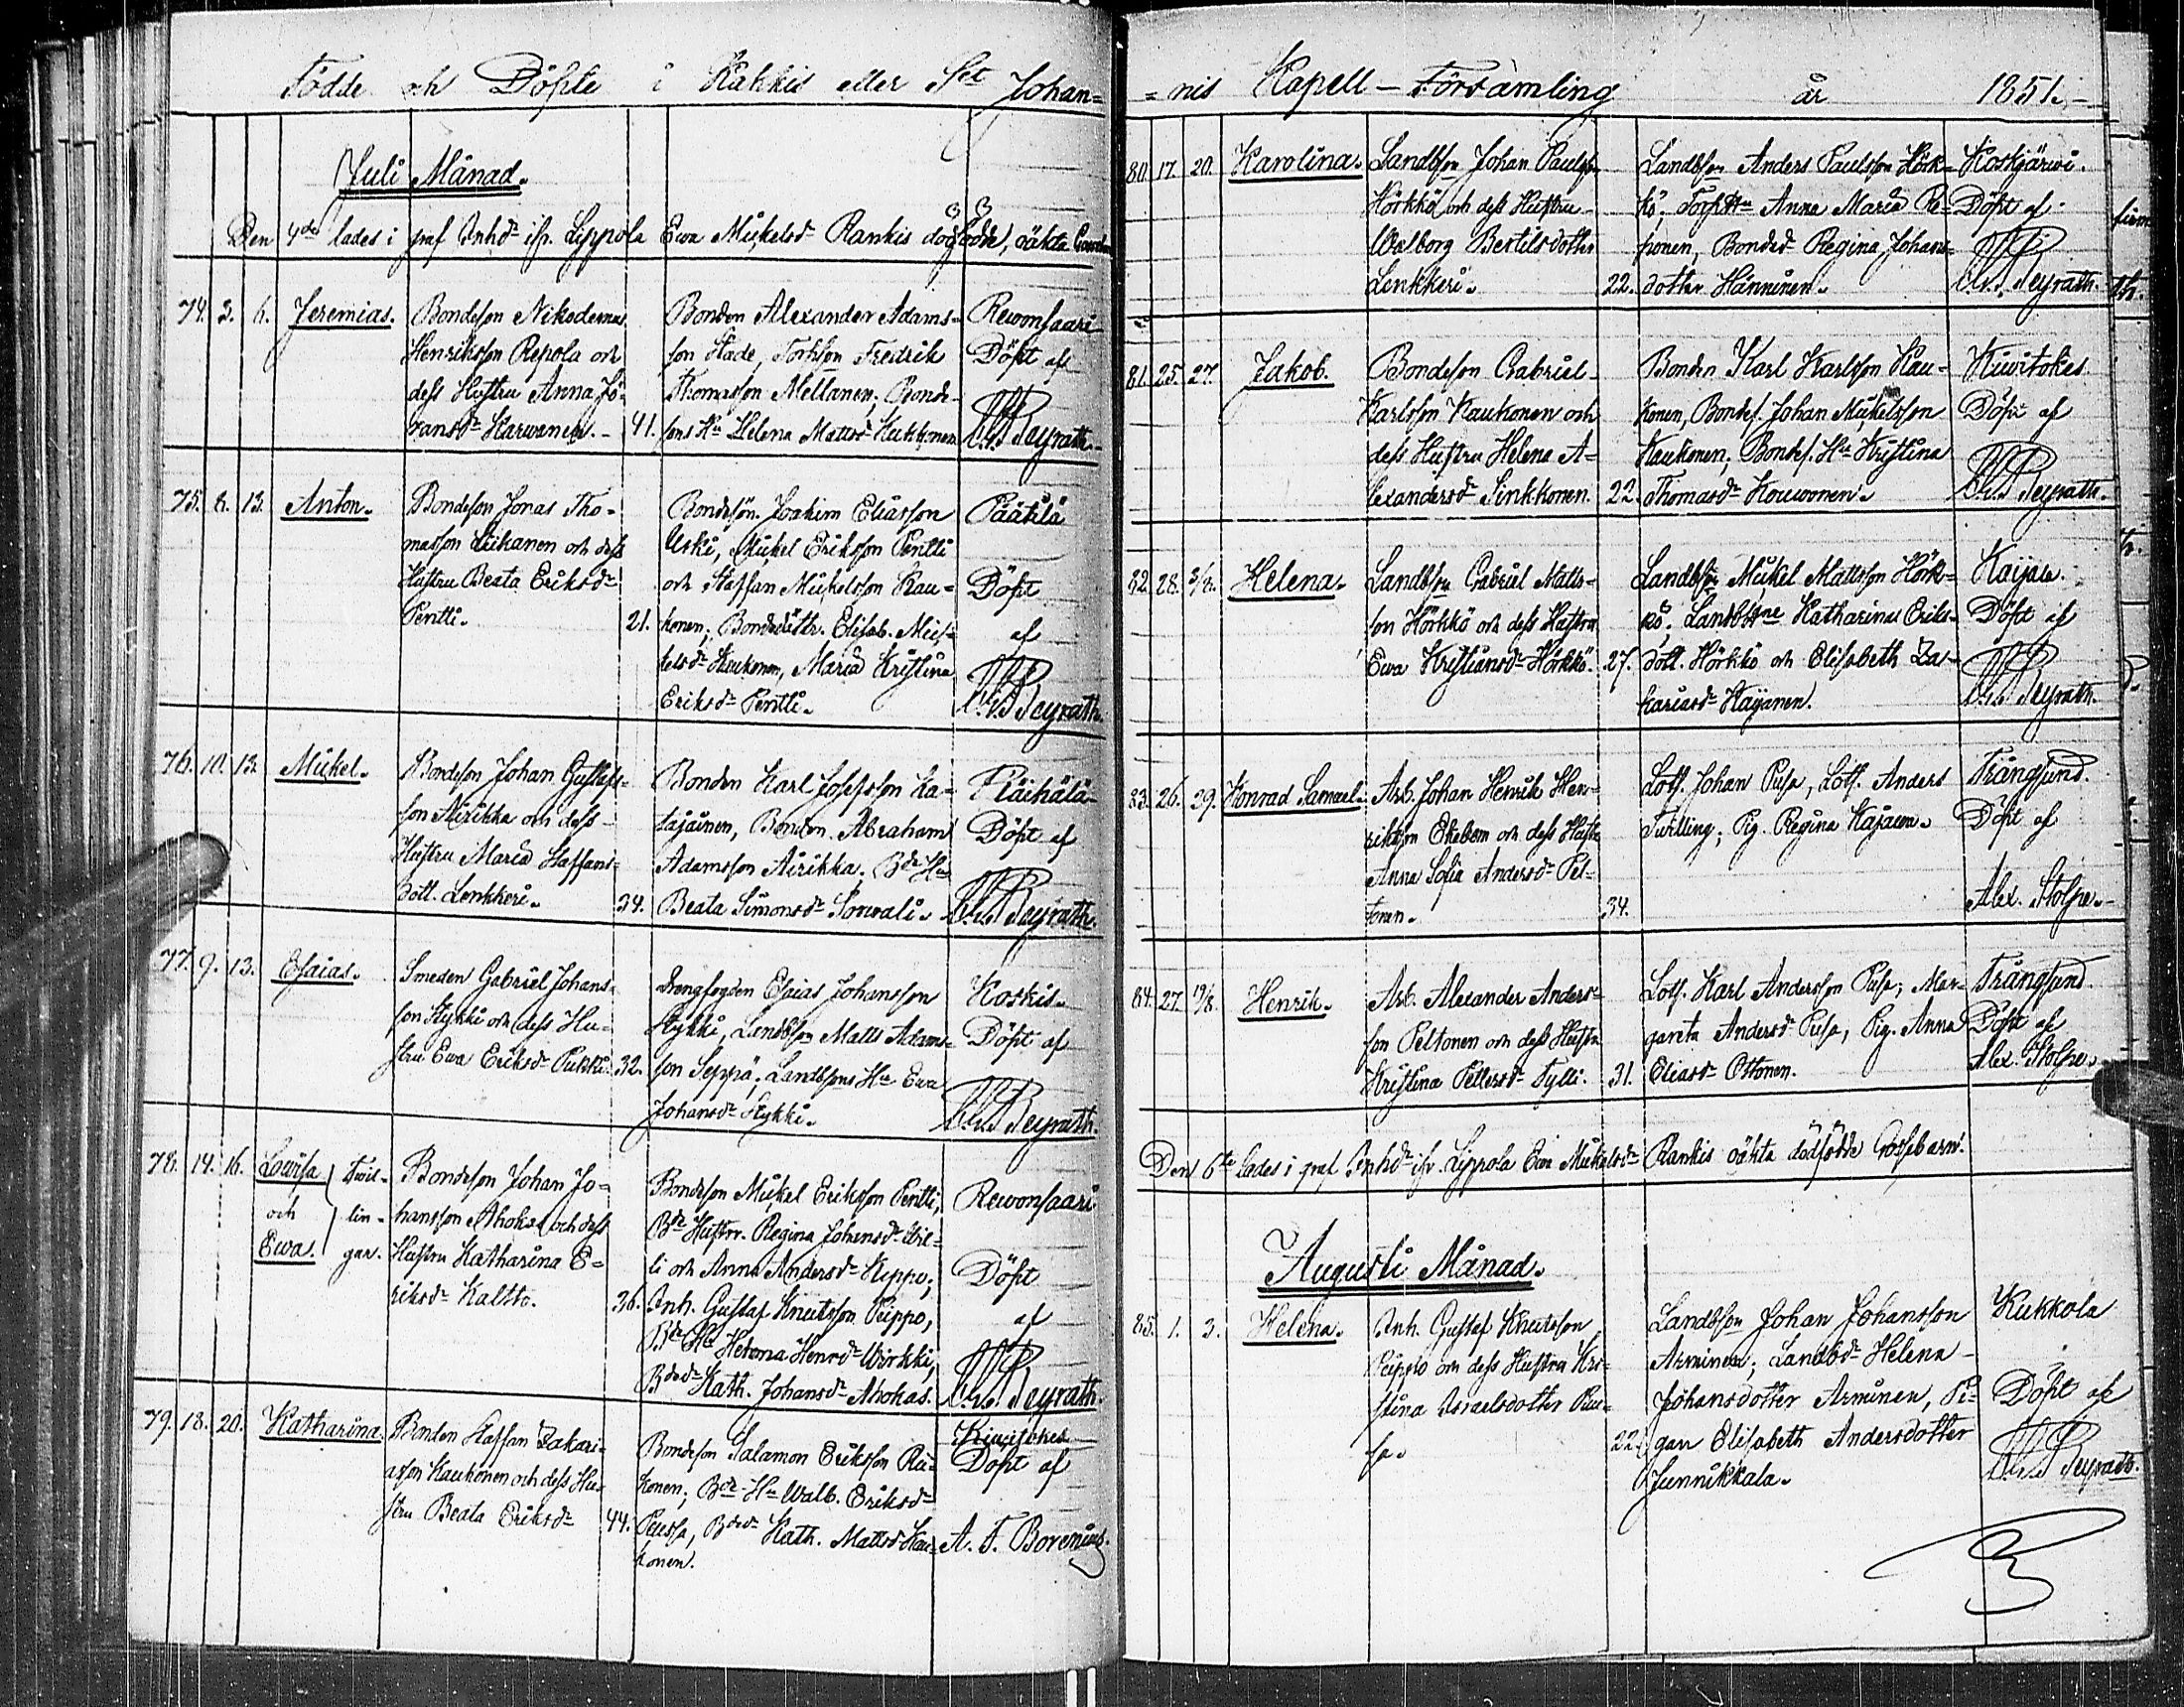 Födde och Döpte i Kakkis eller S:t Johan=
Juli Månad.
Den 4de lades i graf Inhd:r ifr. Lippola Ewa Mickelsd:r Rankis dödfödde, oäkta
74. 3. 6. Jeremias.
Bondeson Nikodemus
Henriksson Repola och
dess Hustru Anna Jö-
ransd:r Harwanen. 41.
Bonden Alexander Adams-
son Stade, Torpson Fredrik
Thomasson Mellanen; Bonde-
sons H:u Helena Mattsd:r Kukkonen
Rewonsaari
Döpt af
Peyrath.
75. 8. 13. Anton.
Bondeson Jonas Tho-
masson Liikanen och dess
Hustru Beata Eriksd:r
Pentti. 21.
Bondeson Joakim Eliasson
Uski, Mickel Eriksson Pentti
och Staffan Mickelsson Kau-
konen; Bondedöttr. Elisab. Mic-
kelsd:r Kaukonen, Maria Kristina
Eriksd:r Pentti.
Päätilä
Döpt
af
Peyrath.
76. 10. 13. Mickel.
Bondeson Johan Gustafs-
son Airikka och dess
Hustru Maria Staffans-
dott. Lenkkeri. 34.
Bonden Karl Josefsson Ka-
tajainen, Bonden Abraham
Adamsson Airikka. Bd:r H:u
Beata Simonsd:r Sorwali.
Räihälä
Döpt af
Peyrath.
77. 9. 13. Esaias.
Smeden Gabriel Johans-
son Hykki och dess Hu-
stru Ewa Eriksd:r Pukki. 32.
Drengfogden Esaias Johansson
Hykki, Landbson Matts Adams-
son Seppä; Landbsons H:u Ewa
Johansd:r Hykki.
Koskis
Döpt af
Peyrath.
78. 14. 16. Lowisa twil-
och lin-
Ewa. gar.
Bondeson Johan Jo-
hansson Ahokas och dess
Hustru Katharina E-
riksd:r Kaltto. 36.
Bondeson Mickel Eriksson Pentti,
Bd:r Hustrr. Regina Johansd:r
li och Anna Andersd:r Kippo;
Inh. Gustaf Knutsson Peippo,
Bd:r H:u Helena Henrsd:r Wirkki,
Bded:r Kath. Johansd:r Ahokas.
Rewonsaari
Döpt
af
Peyrath.
79. 18. 20. Katharina.
Bonden Staffan Zakari-
asson Kaukonen och dess Hu-
stru Beata Eriksd:r 44.
Bondeson Salamon Eriksson
konen; Bd:r H:u Walb. Eriksd:r
Peussa, Bded:r Kath. Mattsd:r Kau-
konen.
Kiwitokes
Döpt af
A. F. Borenius.
= nis Kapell-Församling år 1851.
80. 17. 20. Karolina.
Landbson Johan Paulsson
Hörkkö och dess Hustru
Walborg Bertilsdotter
Lenkkeri. 22.
Landbson Anders Paulsson Hörk-
kö. Torpdttr Anna Maria Re-
ponen, Bonded:r Regina Johans-
dotter Hänninen.
Koskijärwi.
Döpt af
Peyrath.
81. 25. 27. Jakob.
Bondeson Gabriel
Karlsson Kaukonen och
dess Hustru Helena A-
lexandersd:r Sinkkonen. 22.
Bonden Karl Karlsson Kau-
konen, Bondes. Johan Mickelsson
Kaukonen; Bondes. H:u Kristina
Thomasd:r Kouwonen.
Kiwitokes
Döpt af
Peyrath.
82. 28. 3/8. Helena.
Landbson Gabriel Matts-
son Hörkkö och dess Hustru
Ewa Kristiansd:r Hörkkö. 27.
Landbson Mickel Mattsson Hörk-
kö. Katharina Eriks-
dott. Hörkkö och Elisabeth Za-
kariasd:r Häyanen.
Kaijala.
Döpt af
Peyrath.
83. 26. 29. Konrad Samuel.
Arb. Johan Henrik Hen-
riksson Ekebom och dess Hustru
Anna Sofia Andersd:r Pel-
tonen. 34.
Lots. Johan Pusa, Lots. Anders
Twilling; Pig. Regina Kajawa.
Trångsund.
Döpt af
Alex. Stolpe.
84. 27. 19/8. Henrik.
Arb. Alexander Anders-
son Peltonen och dess Hustru
Kristina Pettersd:r Tylli. 31.
Lots. Karl Andersson Pusa; Mar-
gareta Andersd:r Pusa, Pig. Anna
Eliasd:r Ottonen.
Trångsund.
Döpt af
Alex. Stolpe.
Den 6te lades i graf Inhd:r ifr. Lippola Ewa Mickelsd:r Rankis oäkta dödfödde Gossebarn.
Augusti Månad.
85. 1. 3. Helena.
Inh. Gustaf Knutsson
Peippo och dess Hustru Kri-
stina Israelsdotter Pau-
sa. 22.
Landbson Johan Johansson
Arminen; Landbd:r Helena
Johansdotter Arminen, Pi-
gan Elisabeth Andersdotter
Junnikkala.
Kukkola
Döpt af
Peyrath.